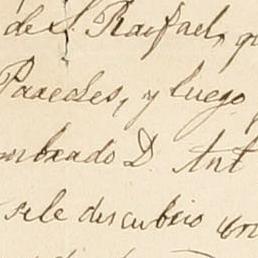 de S. Rafael, q
Paredes, y luego
ombrado D. Ant
se le descubrio un